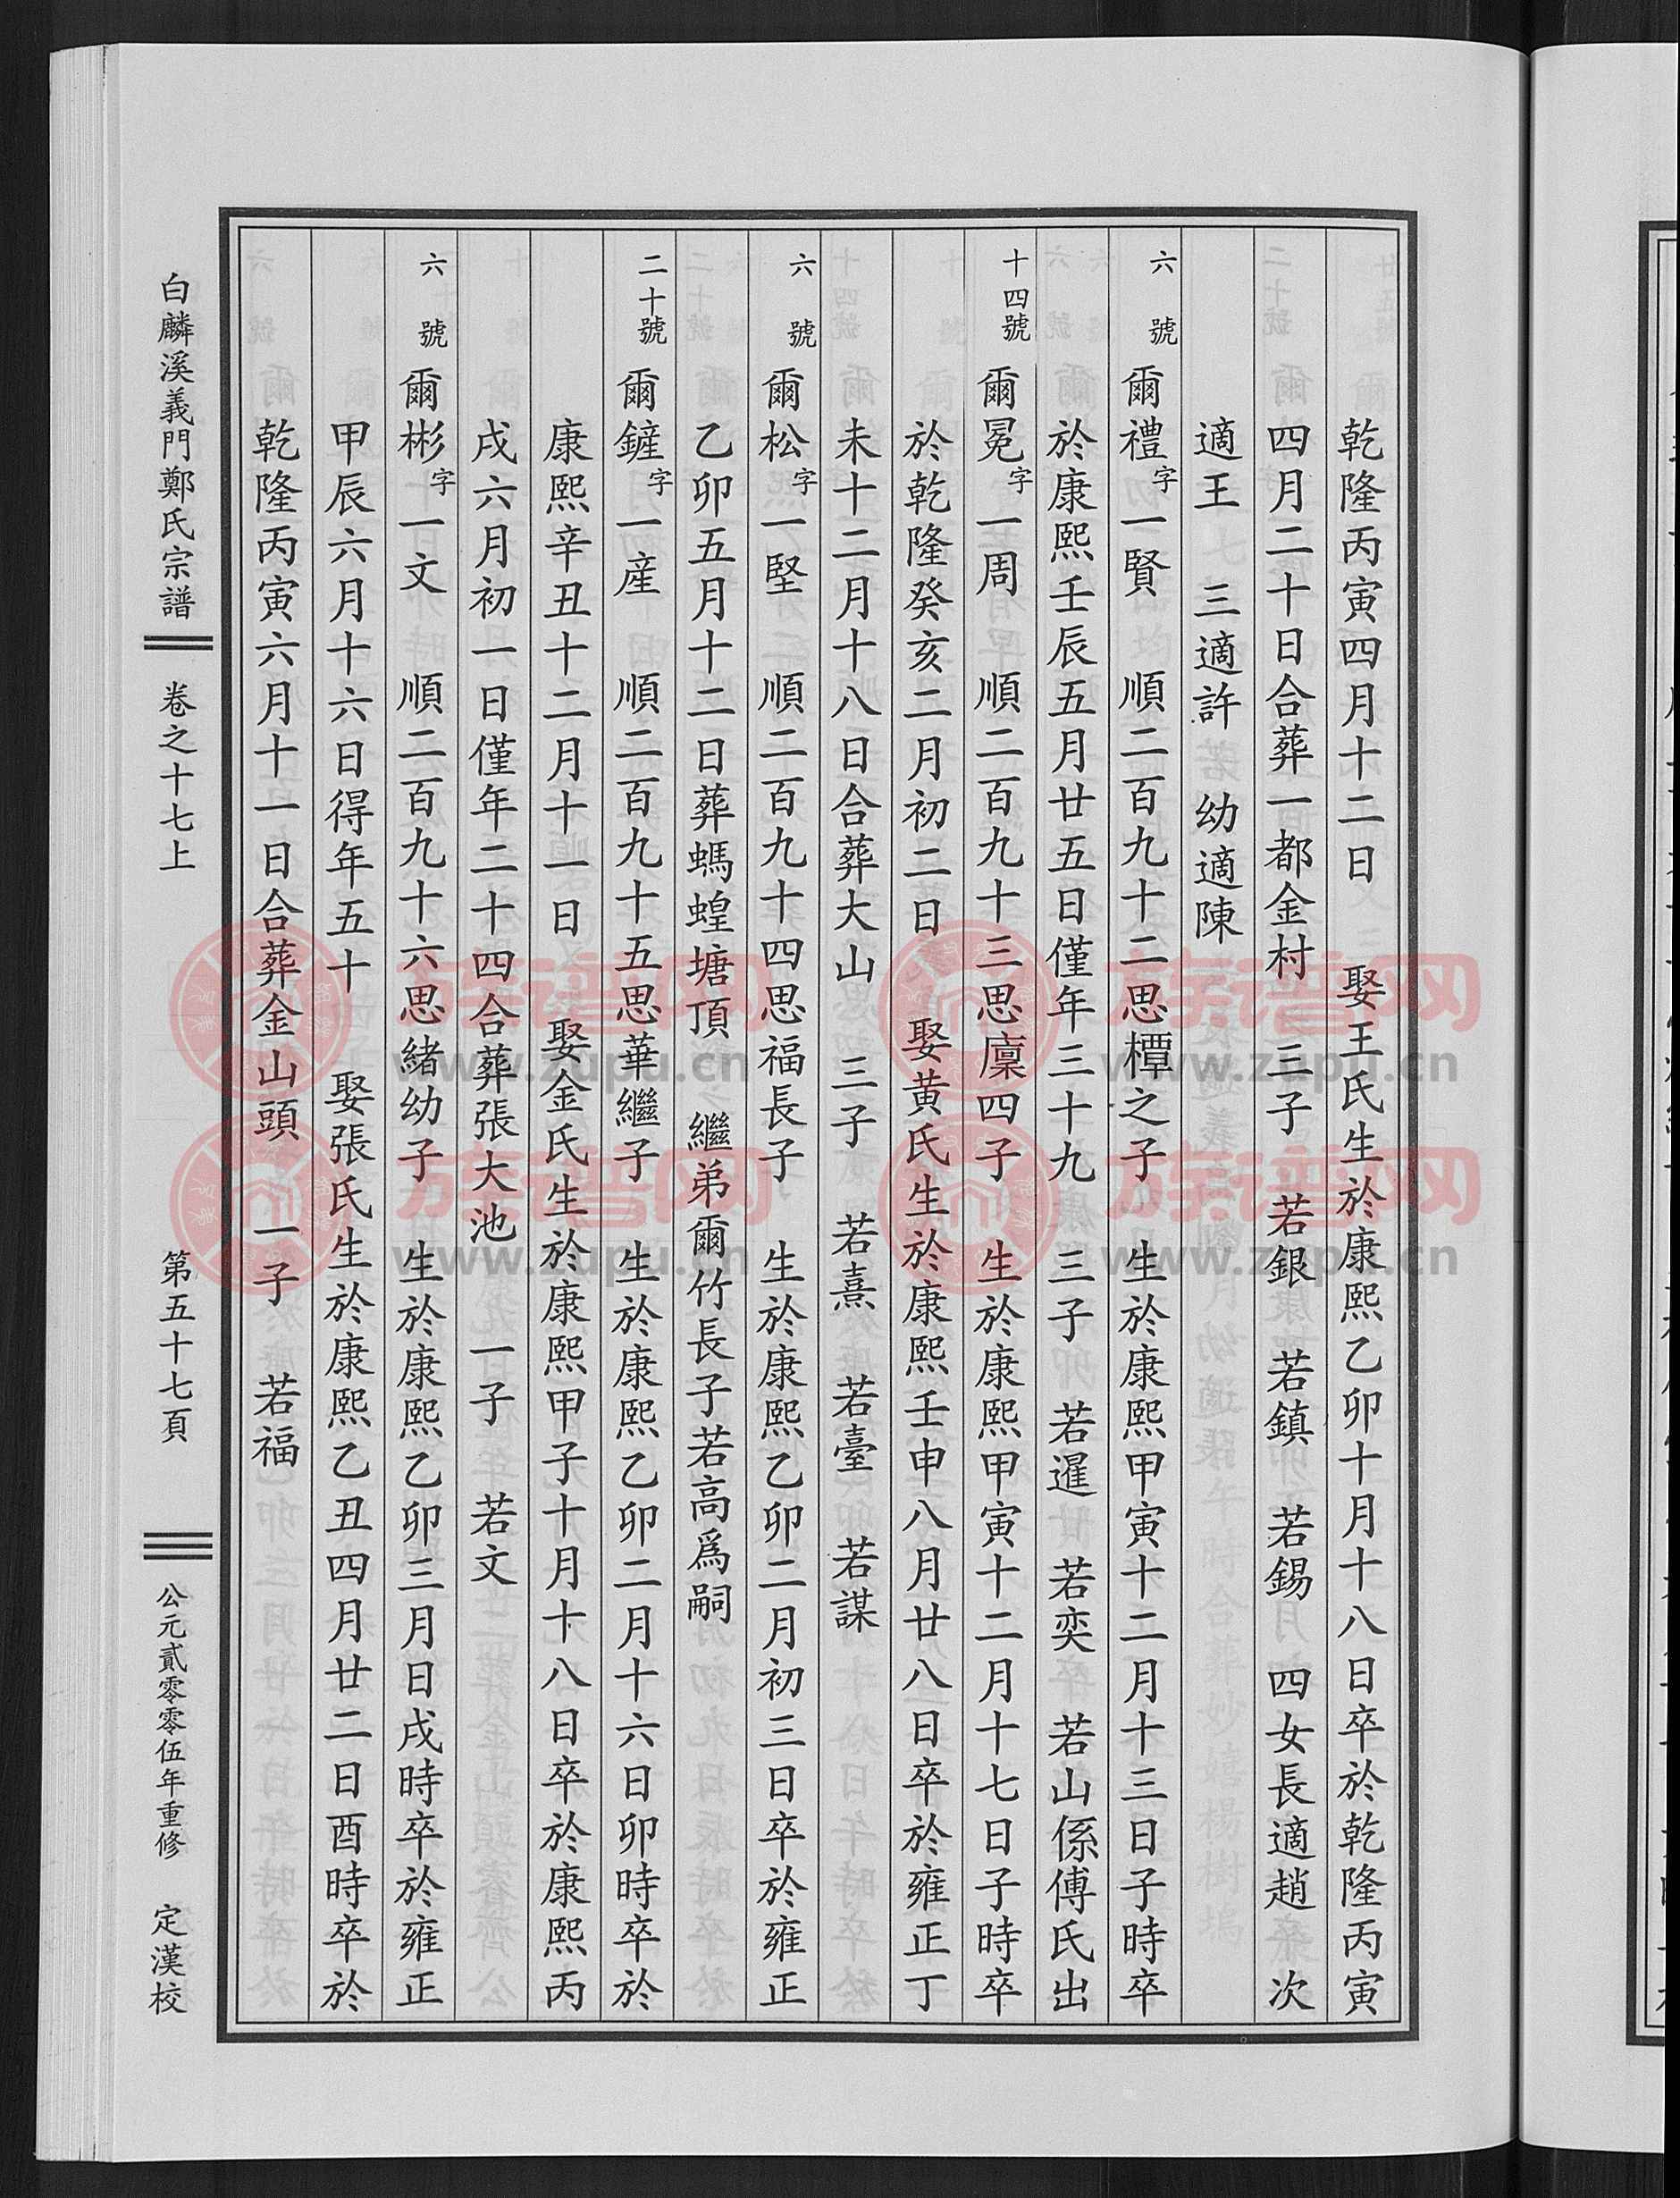 乾隆丙寅四月十二日　娶王氏生於康熙乙卯十月十八日卒於乾隆丙寅
四月二十日合葬一都金村　三子　若銀　若鎮　若錫　四女長適趙　次
適王　三適許　幼適陳
六號　爾禮字一賢　順二百九十二思橝之子　生於康熙甲寅十二月十三日子時卒
於康熙壬辰五月廿五日僅年三十九　三子　若暹　若奕　若山係傅氏出
十四號　爾冕字一周　順二百九十三思廩四子　生於康熙甲寅十二月十七日子時卒
於乾隆癸亥二月初二日　娶黃氏生於康熙壬申八月廿八日卒於雍正丁
未十二月十八日合葬大山　三子　若熹　若臺　若謀
六號　爾松字一堅　順二百九十四思福長子　生於康熙乙卯二月初三日卒於雍正
乙卯五月十二日葬螞蝗塘頂　繼弟爾竹長子若高爲嗣
二十號　爾鏟字一産　順二百九十五思華繼子　生於康熙乙卯二月十六日卯時卒於
康熙辛丑十二月十一日　娶金氏生於康熙甲子十月十八日卒於康熙丙
戌六月初一日僅年二十四合葬張大池　一子　若文
六號　爾彬字一文　順二百九十六思緒幼子　生於康熙乙卯三月日戌時卒於雍正
甲辰六月十六日得年五十　娶張氏生於康熙乙丑四月廿二日酉時卒於
乾隆丙寅六月十一日合葬金山頭　一子　若福
白麟溪義門鄭氏宗譜　卷之十七上　第五十七頁　公元貳零零伍年重修　定漢校
族谱网
www.zupu.cn
族谱网
www.zupu.cn
族谱网
www.zupu.cn
族谱网
www.zupu.cn